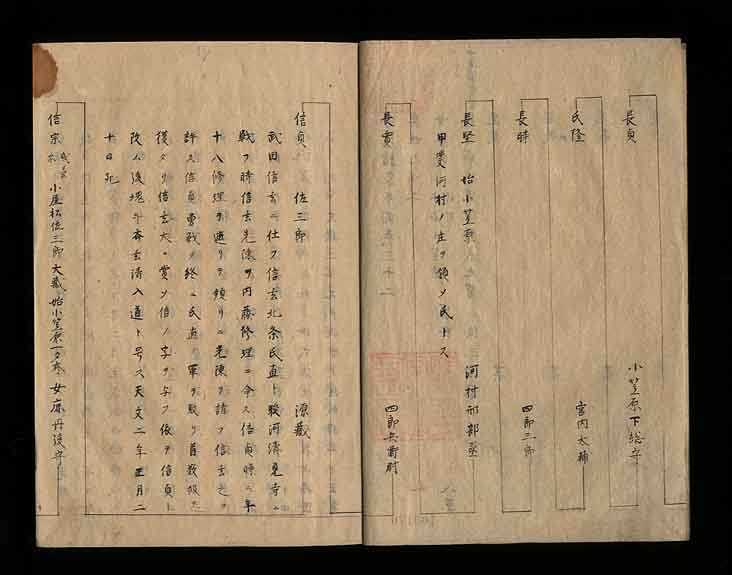 長貞 小笠原下総守
氏隆 宮内大輔
長時 四郎三郎
長堅 始小笠原 河村刑部丞
甲斐河村ノ庄ヲ領ソ氏トス
長貴 四郎兵衛尉
信貞 佐三郎 源蔵
武田信玄ニ仕フ信玄北条氏直ト駿河清見寺ニ
戦フ時信玄先陳ヲ内藤修理ニ令ス信貞時ニ年
十八修理ヲ通リテ頻リニ先陳ヲ請フ信玄之ヲ
許ス信貞勇戦シ終ニ氏直ノ軍ヲ敗リ首数級ヲ
獲タリ信玄大ニ賞ソ信ノ字ヲ与フ依テ信貞ト
改ム後 斉玄清入道ト号ス天文二年正月二
十日死
信宗 小屋松佐三郎 大蔵 始小笠原 女 丹後守